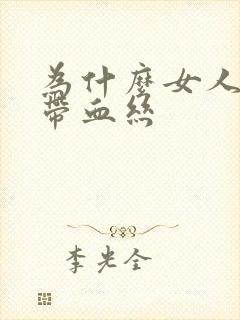 為什麼女人
帶血絲
李光全